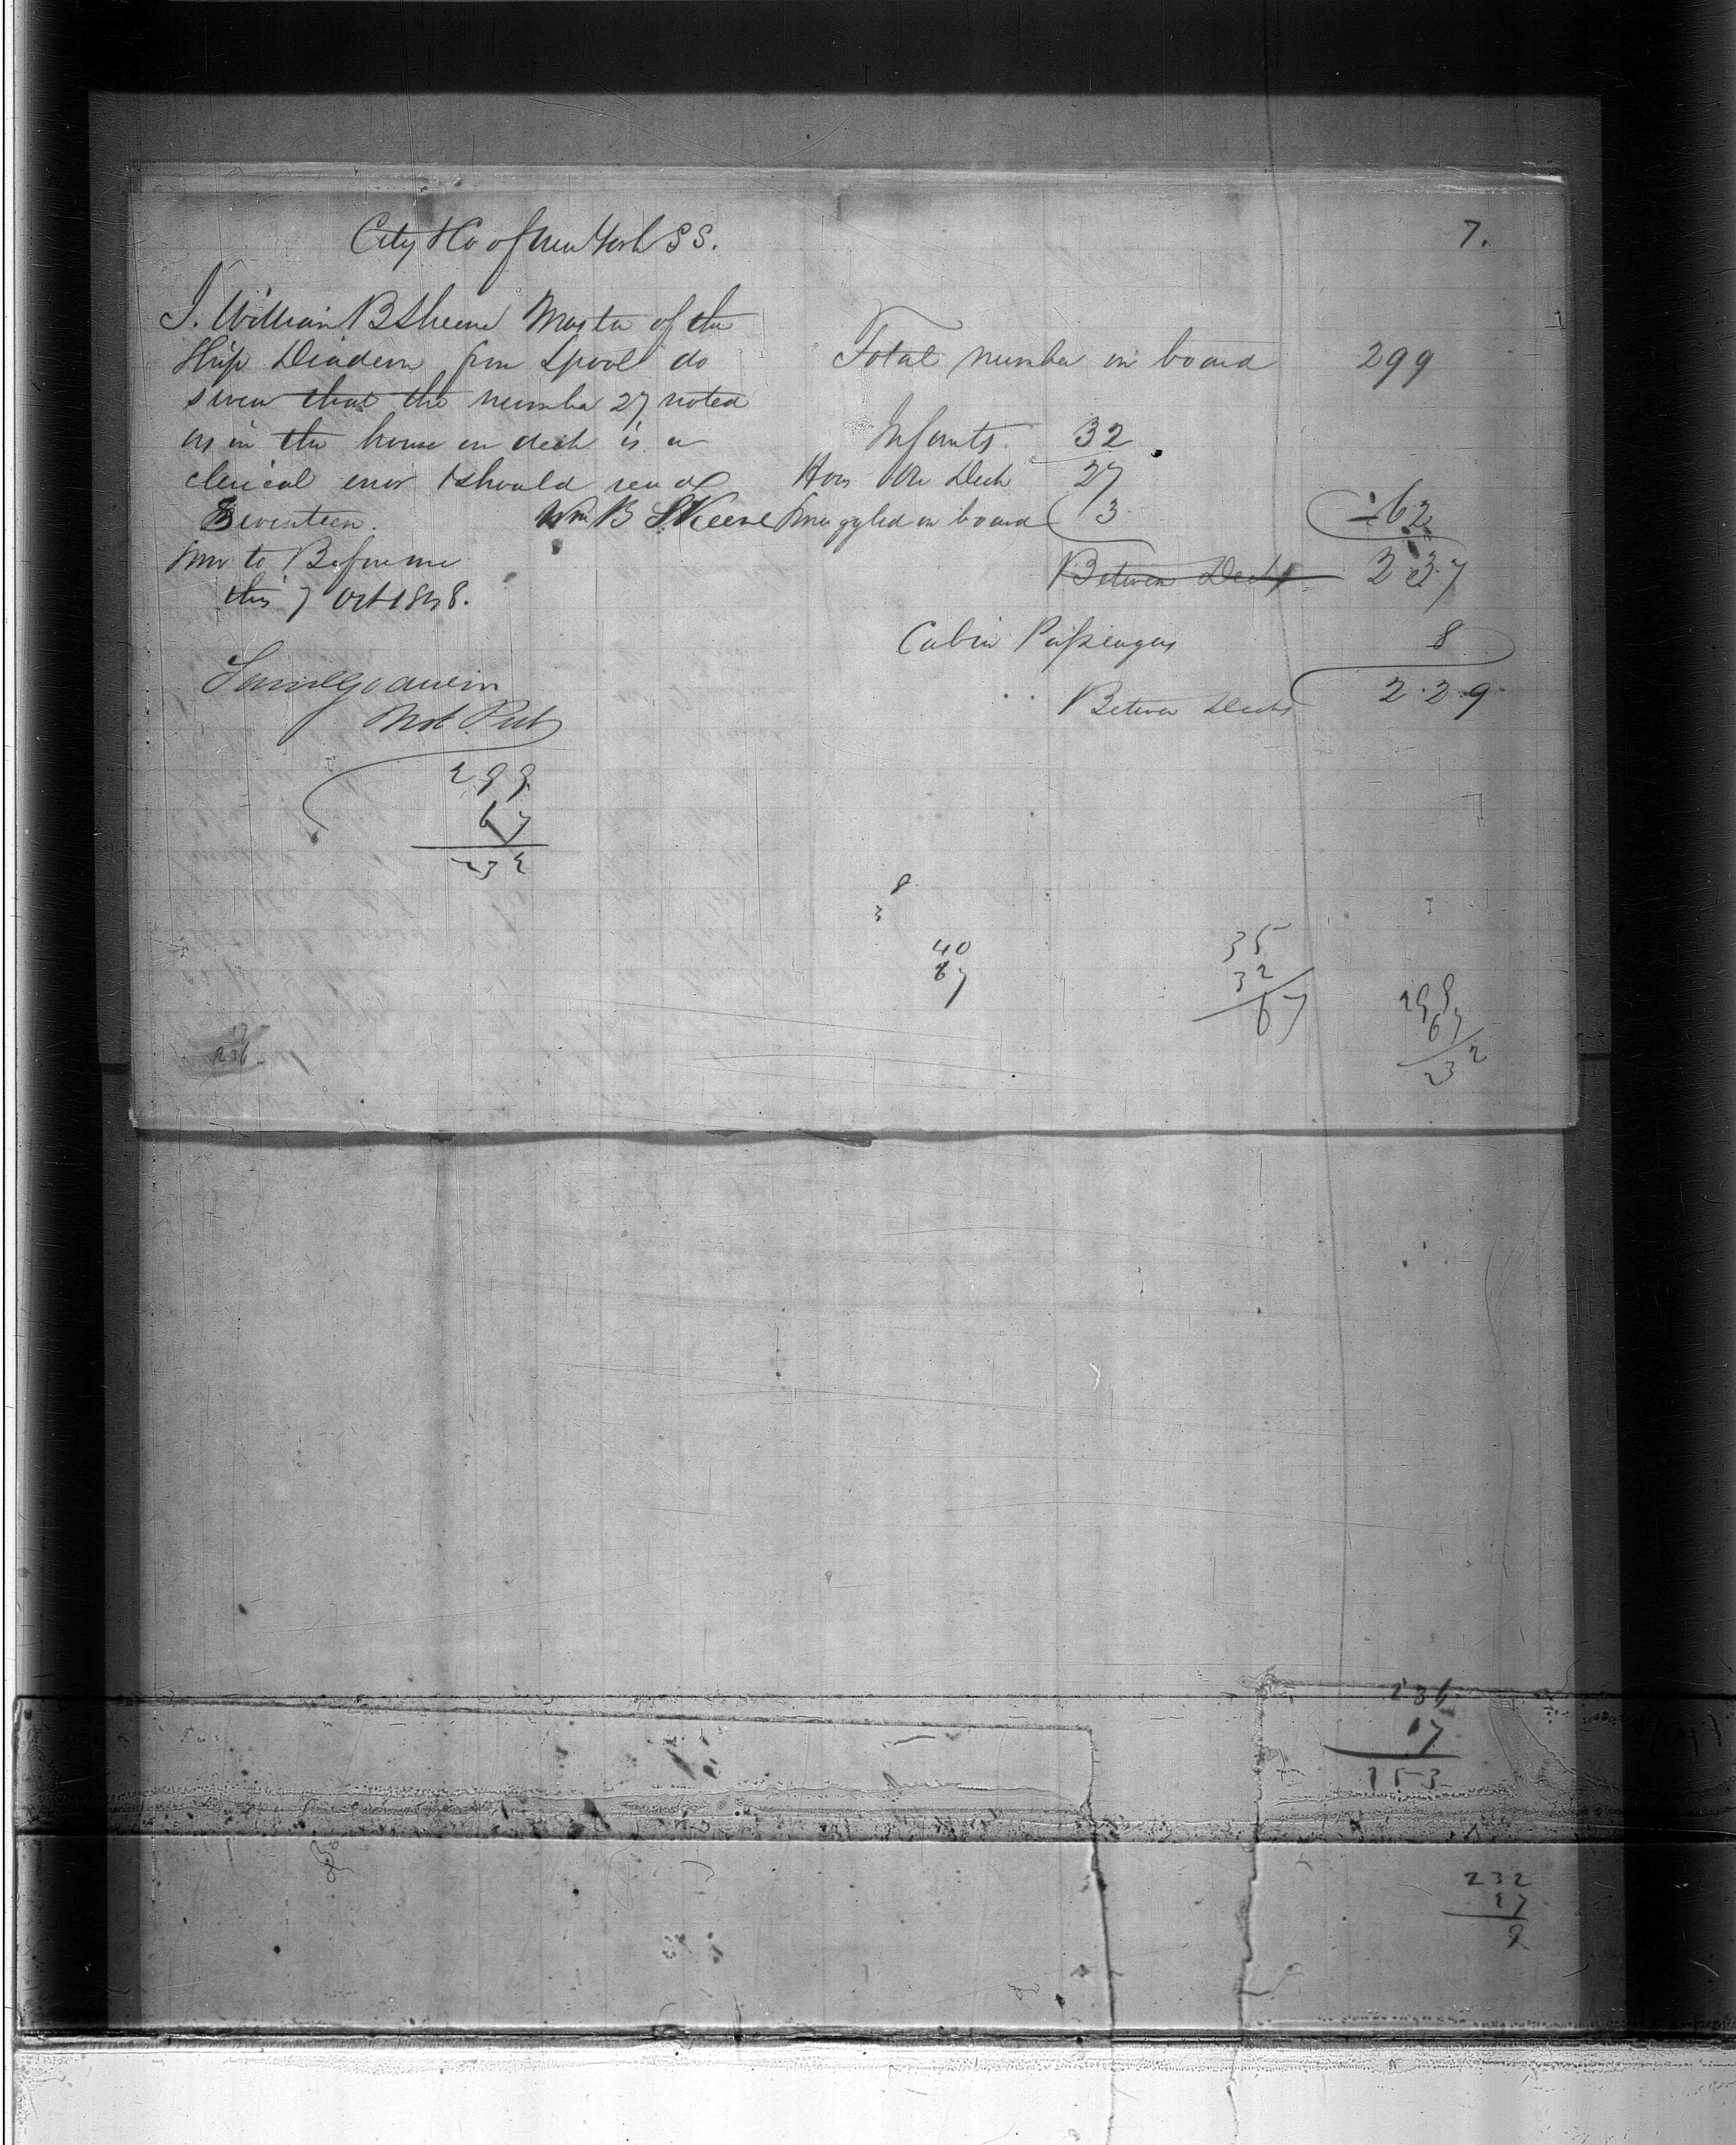 City & Co of New York SS.
7.
I. William B Skeene Master of the
Ship Diadem from Lpool do
swear that the number 27 noted
as in the house on deck is a
clerical error & should read
Seventeen. Wm B SKeene
Swor to Before me
this 7 Oct 1848.
Not. Pub
299
67
232
Total number on board 299
Infants. 32
Hous On Deck 27
Smuggled on board 3 62
Between Decks 237
Cabin Passengers 8
Between Decks 229
8
3
40
67
35
32
67
299
67
232
236
236
17
153
232
27
8